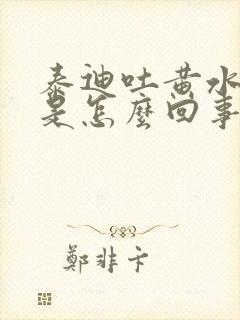 泰迪吐黄水
是怎麼回事
鄭非卞